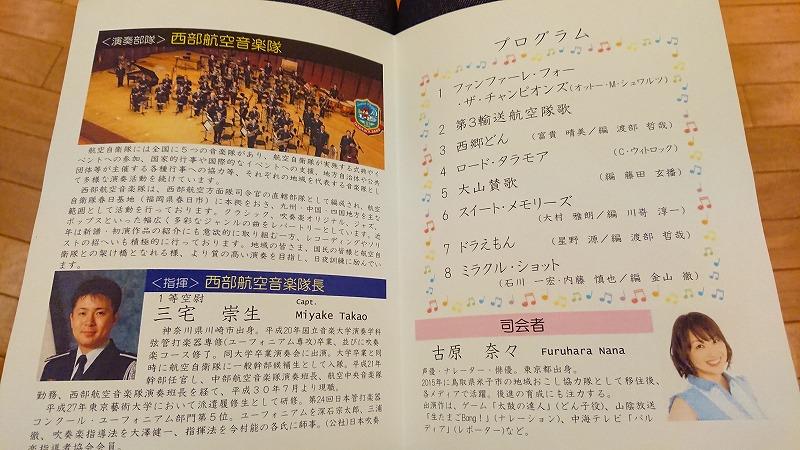 <演奏部隊> 西部航空音楽隊
航空自衛隊には全国に5つの音楽隊があり、航空自衛隊が実施する式典やイ
ベントへの参加、国家的行事や国際的なイベントへの支援、地方自治体や公共
団体等が主催する各種行事への協力等、それぞれの地域を代表する音楽隊とし
て多様な演奏活動を続けています。
西部航空音楽隊は、西部航空方面隊司令官の直轄部隊として編成され、航空
自衛隊春日基地(福岡県春日市)に本拠をおき、九州・中国・四国地方を主な
範囲として活動を行っております。クラシック、吹奏楽オリジナル、ジャズ、
ポップスといった幅広く多彩なジャンルの曲をレパートリーとしています。近
年は新譜・初演作品の紹介にも意欲的に取り組む一方、レコーディングやソリ
ストの招へいも積極的に行っております。地域の皆さま、国民の皆様と航空自
衛隊との架け橋となれる様、より質の高い演奏を目指し、日夜訓練に励んでい
ます。
<指揮> 西部航空音楽隊長
1等空尉 Capt.
三宅 崇生 Miyake Takao
神奈川県川崎市出身。平成20年国立音楽大学演奏学科
弦管打楽器専修(ユーフォニアム専攻)卒業、並びに吹奏
楽コース修了。同大学卒業演奏会に出演。大学卒業と同
時に航空自衛隊に一般幹部候補生として入隊。平成21年
幹部任官し、中部航空音楽隊演奏班長、航空中央音楽隊
勤務、西部航空音楽隊演奏班長を経て、平成30年7月より現職。
平成27年東京藝術大学において派遣履修生として研修。第24回日本管打楽器
コンクール・ユーフォニアム部門第5位。ユーフォニアムを深石宗太郎、三浦
徹、吹奏楽指導法を大澤健一、指揮法を今村能の各氏に師事。(公社)日本吹奏
楽指導者協会会員。
プログラム
1 ファンファーレ・フォー
・ザ・チャンピオンズ(オットー・M・シュワルツ)
2 第3輸送航空隊歌
3 西郷どん (富貴 晴美/編 渡部 哲哉)
4 ロード・タラモア (C・ウィトロック)
5 大山賛歌 (編 藤田 玄播)
6 スイート・メモリーズ
(大村 雅朗/編 川嵜 淳一)
7 ドラえもん (星野 源/編 渡部 哲哉)
8 ミラクル・ショット
(石川 一宏・内藤 慎也/編 金山 徹)
司会者
古原 奈々 Furuhara Nana
声優・ナレーター・俳優。東京都出身。
2015年に鳥取県米子市の地域おこし協力隊として移住後、
各メディアで活躍。後進の育成にも注力する。
出演作は、ゲーム「太鼓の達人」(どん子役)、山陰放送
「生たまごBang!」(ナレーション)、中海テレビ「パル
ディア」(レポーター)など。